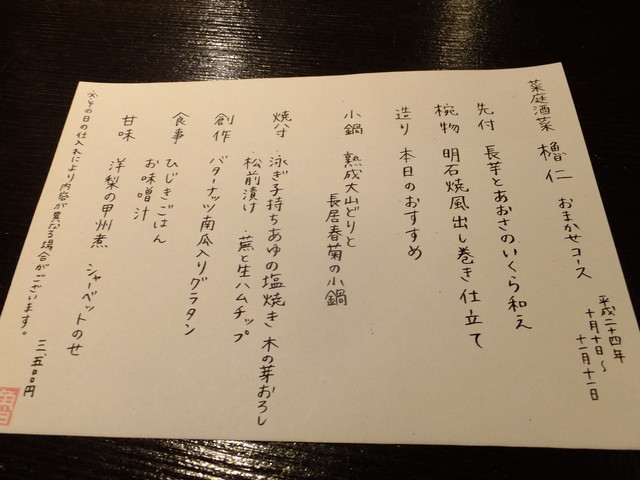 菜庭酒菜 櫓仁 おまかせコース
平成二十四年
十月十日〜
十一月十一日
先付 長芋とあおさのいくら和え
椀物 明石焼風出し巻き仕立て
造り 本日のおすすめ
小鍋 熟成大山どりと
長居春菊の小鍋
焼八寸 ・泳ぎ子持ちあゆの塩焼き 木の芽おろし
・松前漬け ・蕪と生ハムチップ
創作 バターナッツ南瓜入りグラタン
食事 ひじきごはん
お味噌汁
甘味 洋梨の甲州煮 シャーベットのせ
三、五〇〇円
※その日の仕入れにより内容が異なる場合がございます。